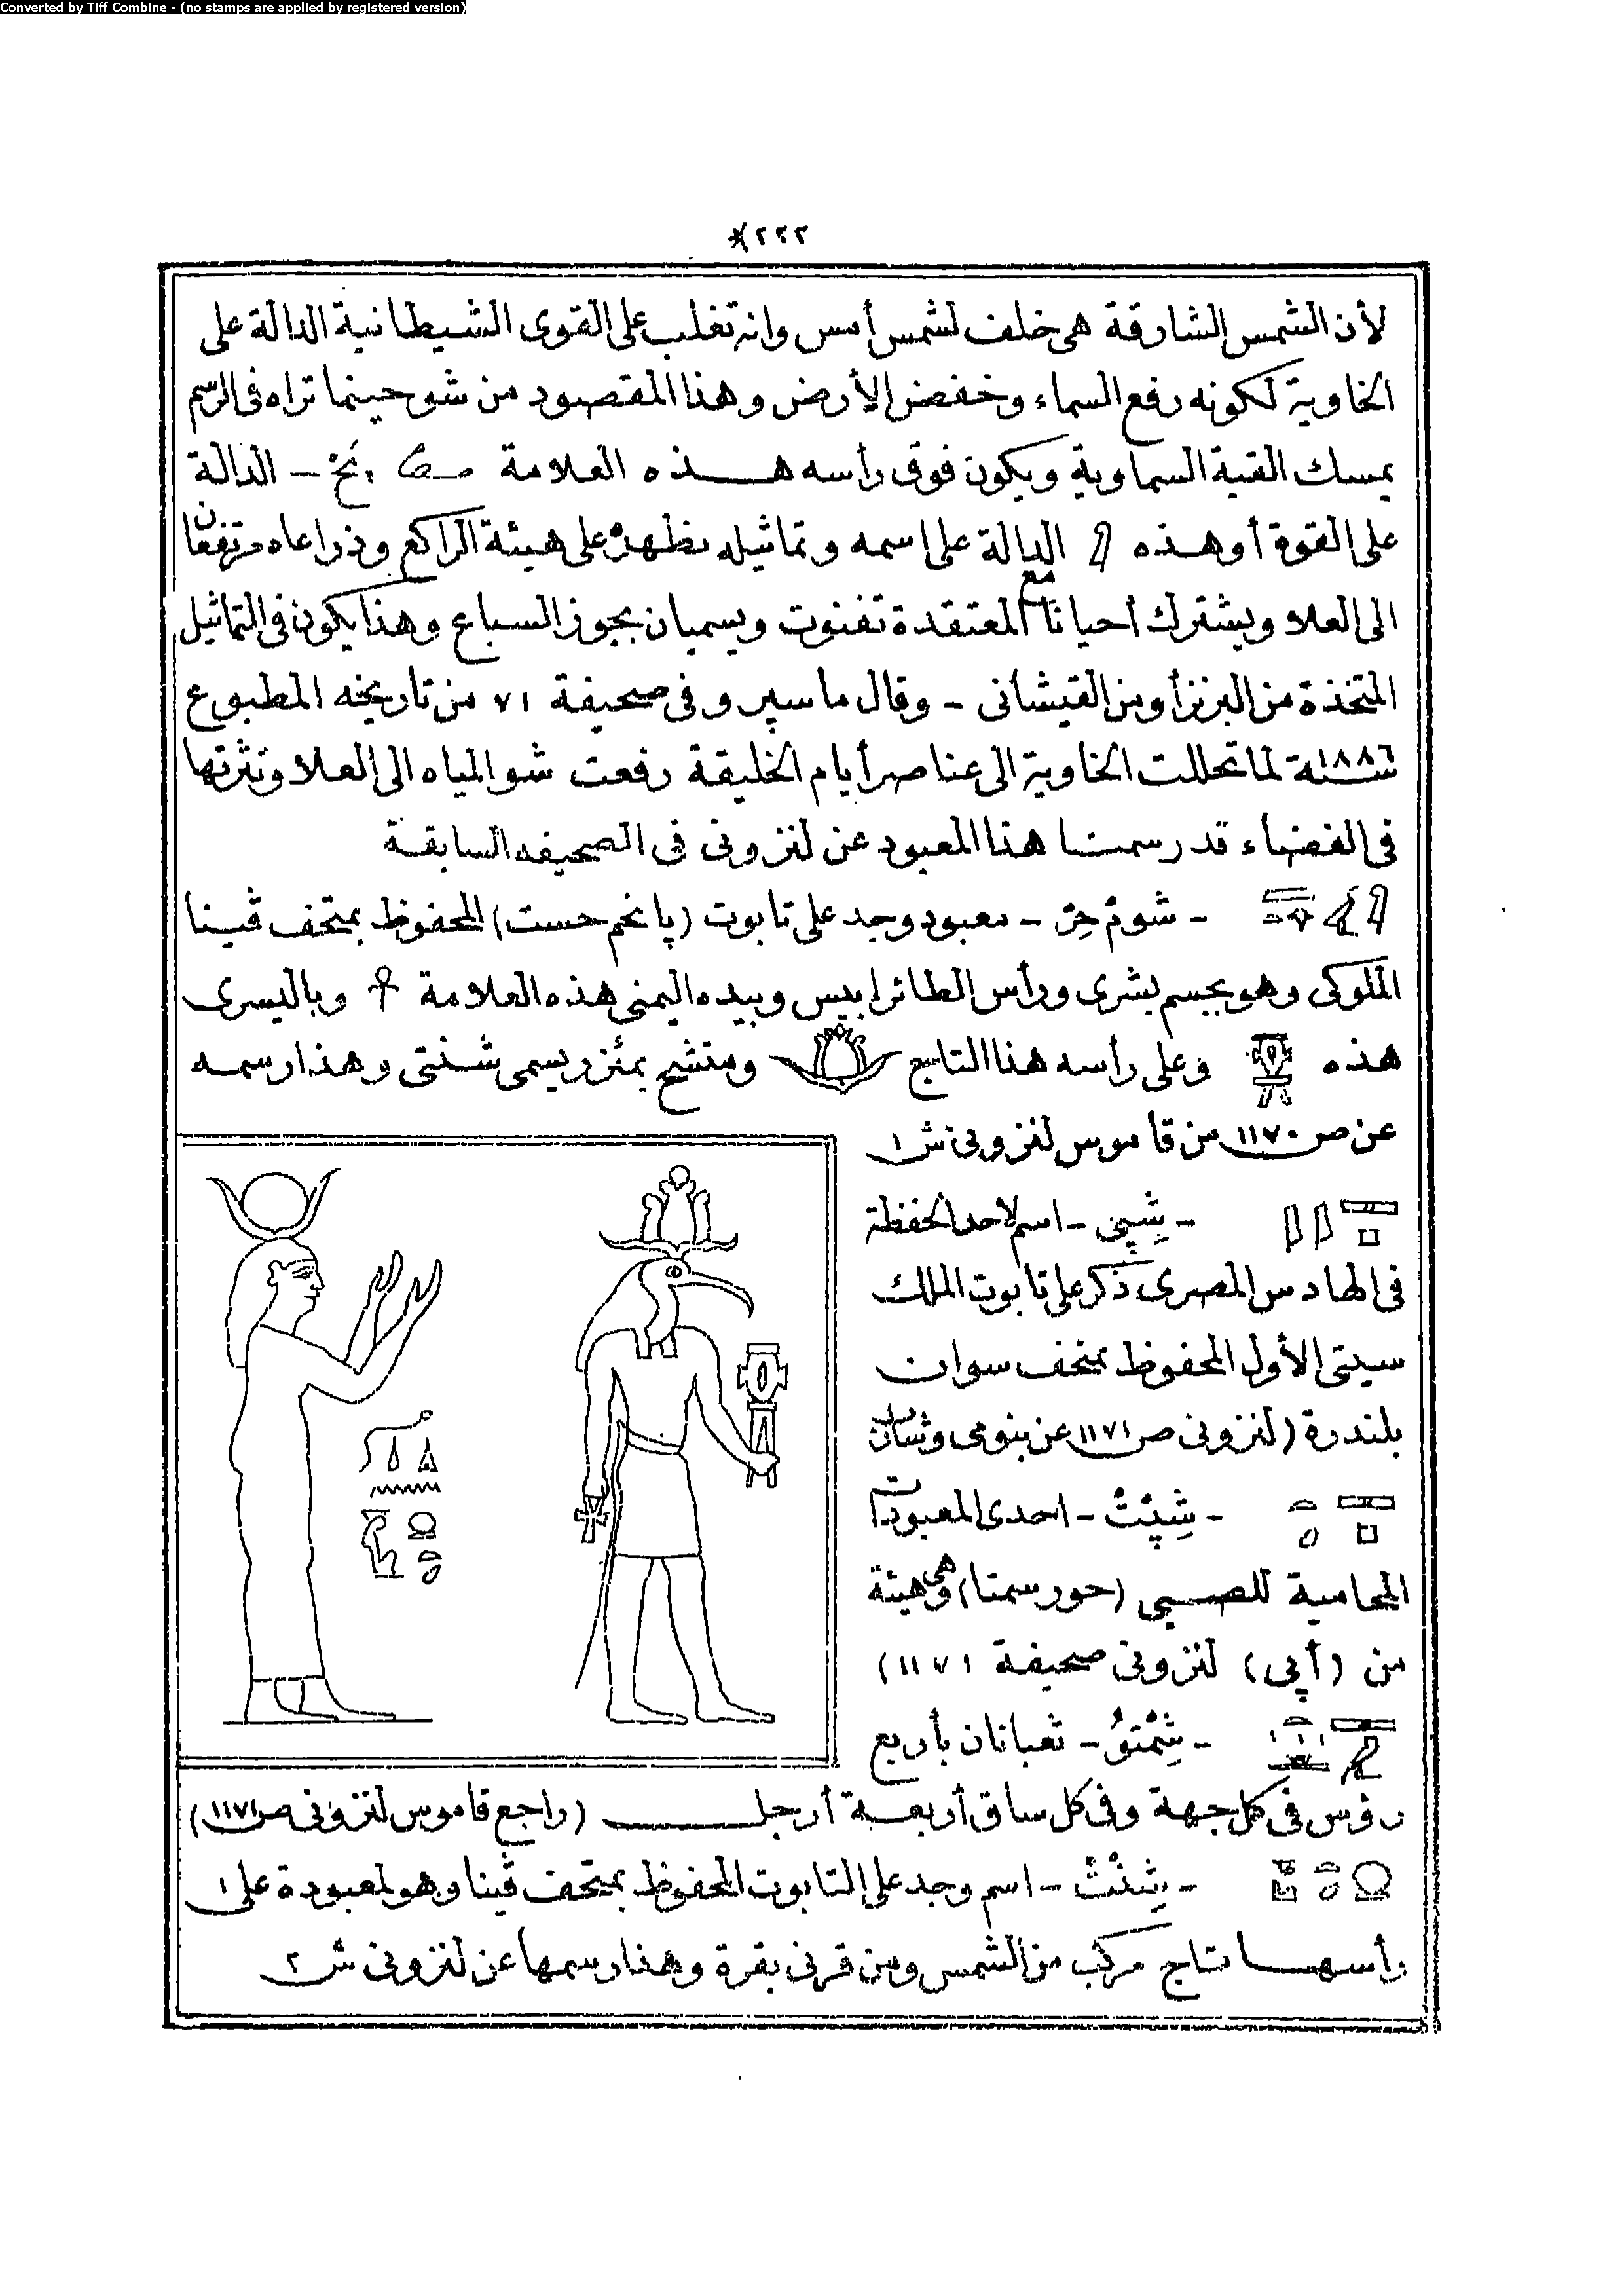 Converted by Tiff Combine - (no stamps are applied by registered version)
٢٢٢
لأن الشمس الشارقة هى خلف لشمس أمس وانه تغلب على القوى الشيطانية الدالة على
الخاوية لكونه رفع السماء وخفض الأرض وهذا المقصود من شو حينما تراه فى الرسم
يمسك القبة السماوية ويكون فوق رأسه هذه العلامة ، نَخْ - الدالة
على القوة أو هذه الدالة على اسمه وتماثيله تظهره على هيئة الراكع وذراعاه مرتفعان
الى العلا ويشترك أحيانا مع المعتقدة تفنوت ويسميان بجوز السباع وهذا يكون فى التماثيل
المتخذة من البرنز أو من القيشانى - وقال ماسپرو فى صحيفة ٧١ من تاريخه المطبوع
سنة ١٨٨٦ لما تحللت الخاوية الى عناصر أيام الخليقة رفعت شو المياه الى العلا ونثرتها
فى الفضاء قد رسمنا هذا المعبود عن لنزونى فى الصحيفه السابقة
- شومْ حِرْ - معبود وجد على تابوت (پانخم حست) المحفوظ بمتحف ڤينا
الملوكى وهو بجسم بشرى ورأس الطائر إبيس وبيده اليمنى هذه العلامة وباليسرى
هذه وعلى رأسه هذا التاج ومتشح بمئزر ويسمى شنتى وهذا رسمه
عن ص ١١٧٠ من قاموس لنزونى ش ١
- شِپِى - اسم لاحد الحفظة
فى الهادس المصرى ذكر على تابوت الملك
سيتى الأول المحفوظ بمتحف سوان
بلندرة (لنزونى ص ١١٧١ عن بنومى وشارب
- شِپْتْ - احدى المعبودات
المحامية للصبى (حورسمتا) وهى هيئة
من (أپى) لنزونى صحيفة ١١٧١)
- شِمْتىُ - ثعبانان بأربع
رؤس فى كل جهة وفى كل ساق أربعة أرجل (راجع قاموس لنزونى ص ١١٧١)
- شِنْتْ - اسم وجد على التابوت المحفوظ بمتحف ڤينا وهو لمعبودة على
رأسها تاج مركب من الشمس ومن قرنى بقرة وهذا رسمها عن لنزونى ش ٢